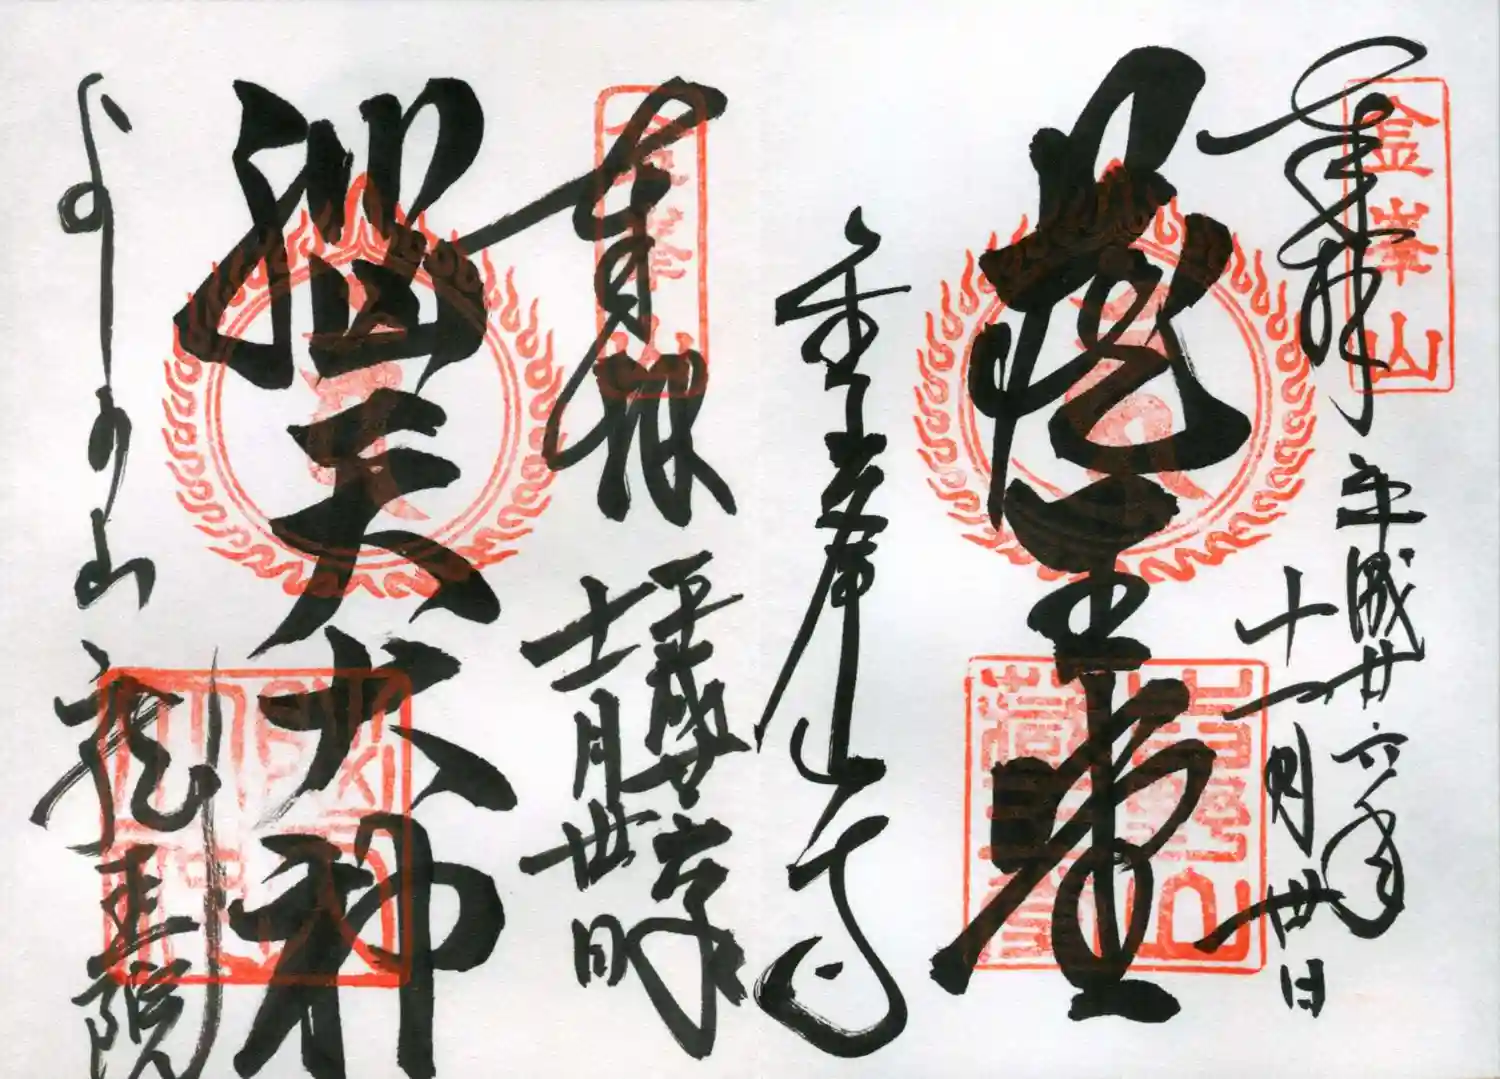 金峯山
奉拝
平成廿六年
十一月卅日
蔵王堂
金峯山寺
金峯山
奉拝
平成廿六年
十一月卅日
脳天大神
よしの山
龍王院